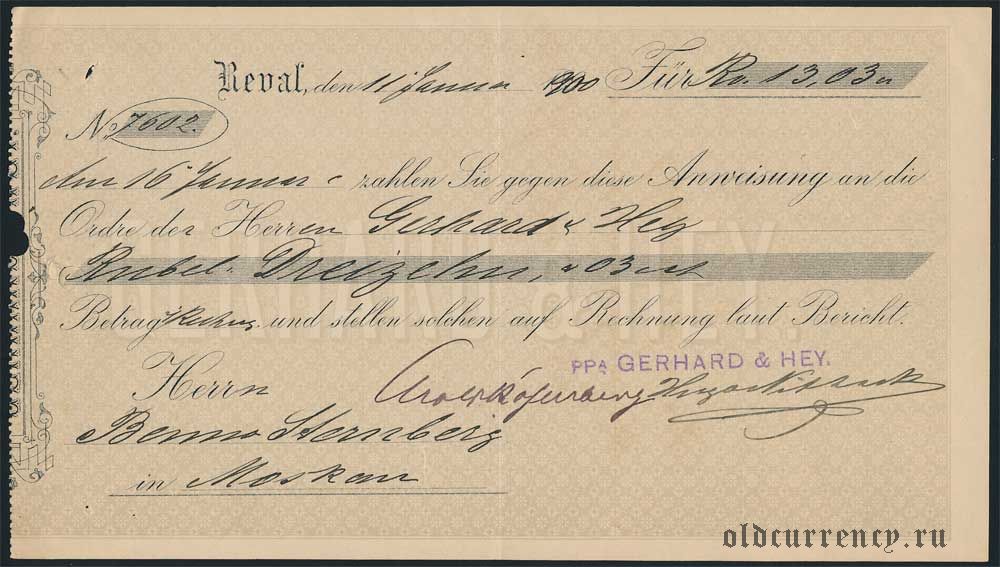 Reval, den 11 Januar 1900 Für Ro. 13,03
No 7602.
den 16 Januar zahlen Sie gegen diese Anweisung an die
Ordre der Herren Gerhard & Hey
Rubel Dreizehn, 03
Betrag und stellen solchen auf Rechnung laut Bericht.
GERHARD & HEY
PPA GERHARD & HEY.
Herrn
Benno Sternberg
in Moskau
oldcurrency.ru